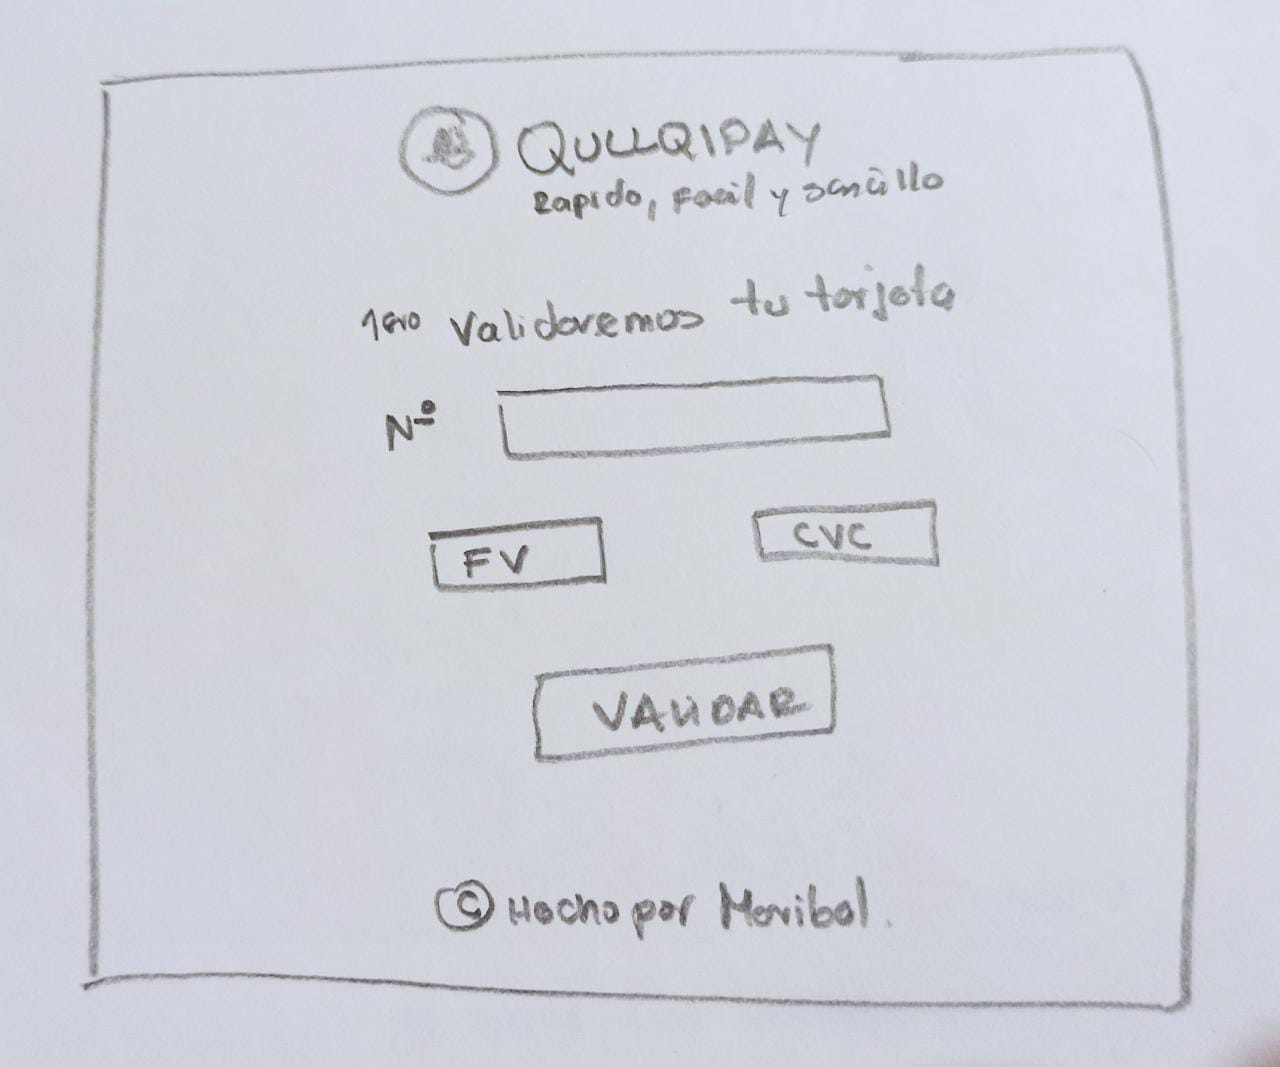 QULLQIPAY
Rapido, Facil y sencillo
1ero Validaremos tu tarjeta
Nº
FV
CVC
VALIDAR
© Hecho por Maribel.